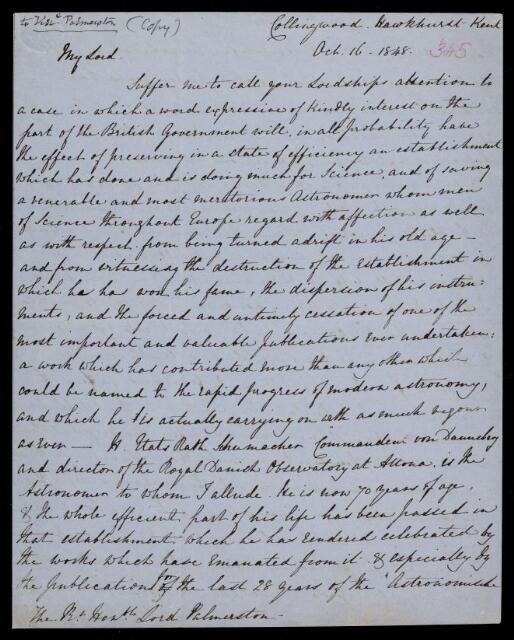 to Visct. Palmerston (Copy)
Collingwood. Hawkhurst. Kent
Oct. 16 - 1848. 345
My Lord.
Suffer me to call your Lordships attention to
a case in which a word expressive of kindly interest on the
part of the British Government will, in all probability have
the effect of preserving in a state of efficiency an establishment
which has done and is doing much for Science, and of saving
a venerable and most meritorious Astronomer whom men
of Science throughout Europe regard with affection as well
as with respect from being turned adrift in his old age -
and from witnessing the destruction of the Establishment in
which he ha won his fame, the dispersion of his instru:
ments, and the forced and untimely cessation of one of the
most important and valuable publications ever undertaken:
a work which has contributed more than any other which
could be named to the rapid progress of modern astronomy,
and which he is actually carrying on with as much vigour
as ever — H. Etats Rath Schumacher Commandeur von Dannebrog
and director of the Royal Danish Observatory at Altona. is the
Astronomer to whom I allude. He is now 70 years of age.
& the whole efficient part of his life has been passed in
that establishment which he has rendered celebrated by
the works which have emanated from it & especially by
the publications for the last 28 years of the "Astronomische
The Rt. Honble. Lord Palmerston -